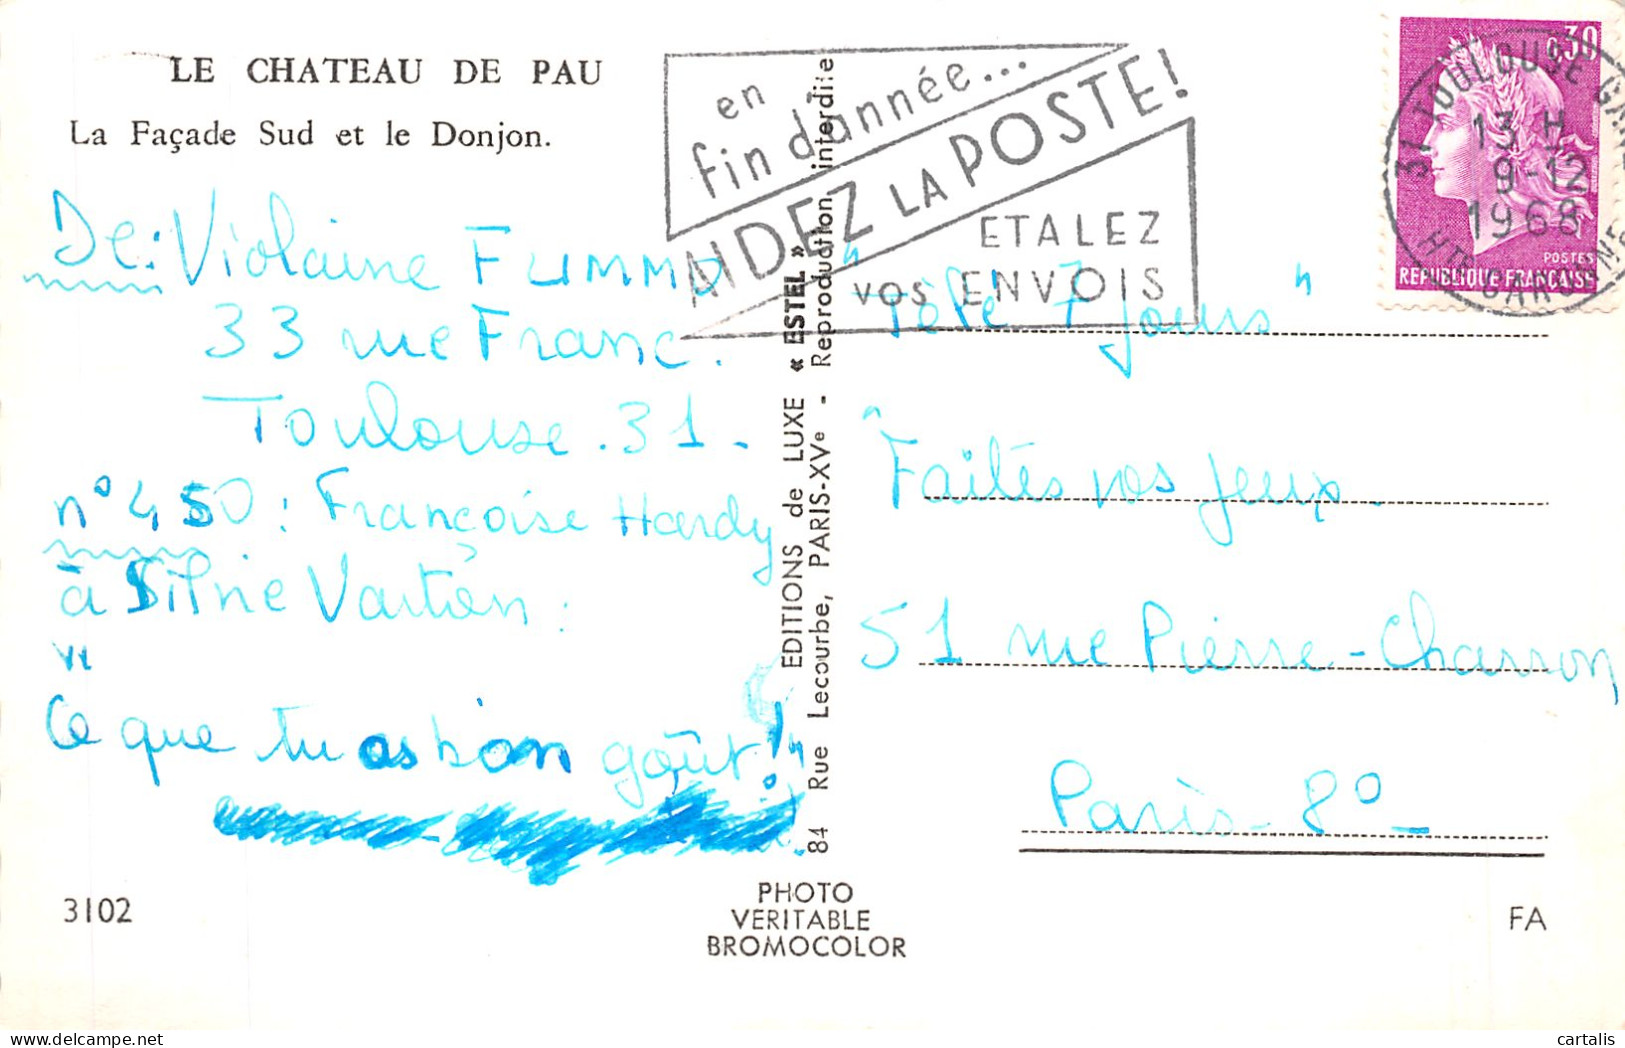 LE CHATEAU DE PAU
La Façade Sud et le Donjon.
en
fin d'année...
AIDEZ LA POSTE!
ETALEZ
VOS ENVOIS
0,30
POSTES
REPUBLIQUE FRANÇAISE
31 TOULOUSE GARE
13 H
9-12
1968
HTE GARONNE
De: Violaine FUMMO
33 rue Franc.
Toulouse. 31-
n° 450: Françoise Hardy
à Silvie Vartan:
"
Ce que tu as bon goût!"
EDITIONS de LUXE « ESTEL »
84 Rue Lecourbe, PARIS-XVe - Reproduction interdite
"Télé 7 jours"
"Faites vos jeux-
51 rue Pierre-Charron
Paris-8°-
3102
PHOTO
VERITABLE
BROMOCOLOR
FA
cartalis